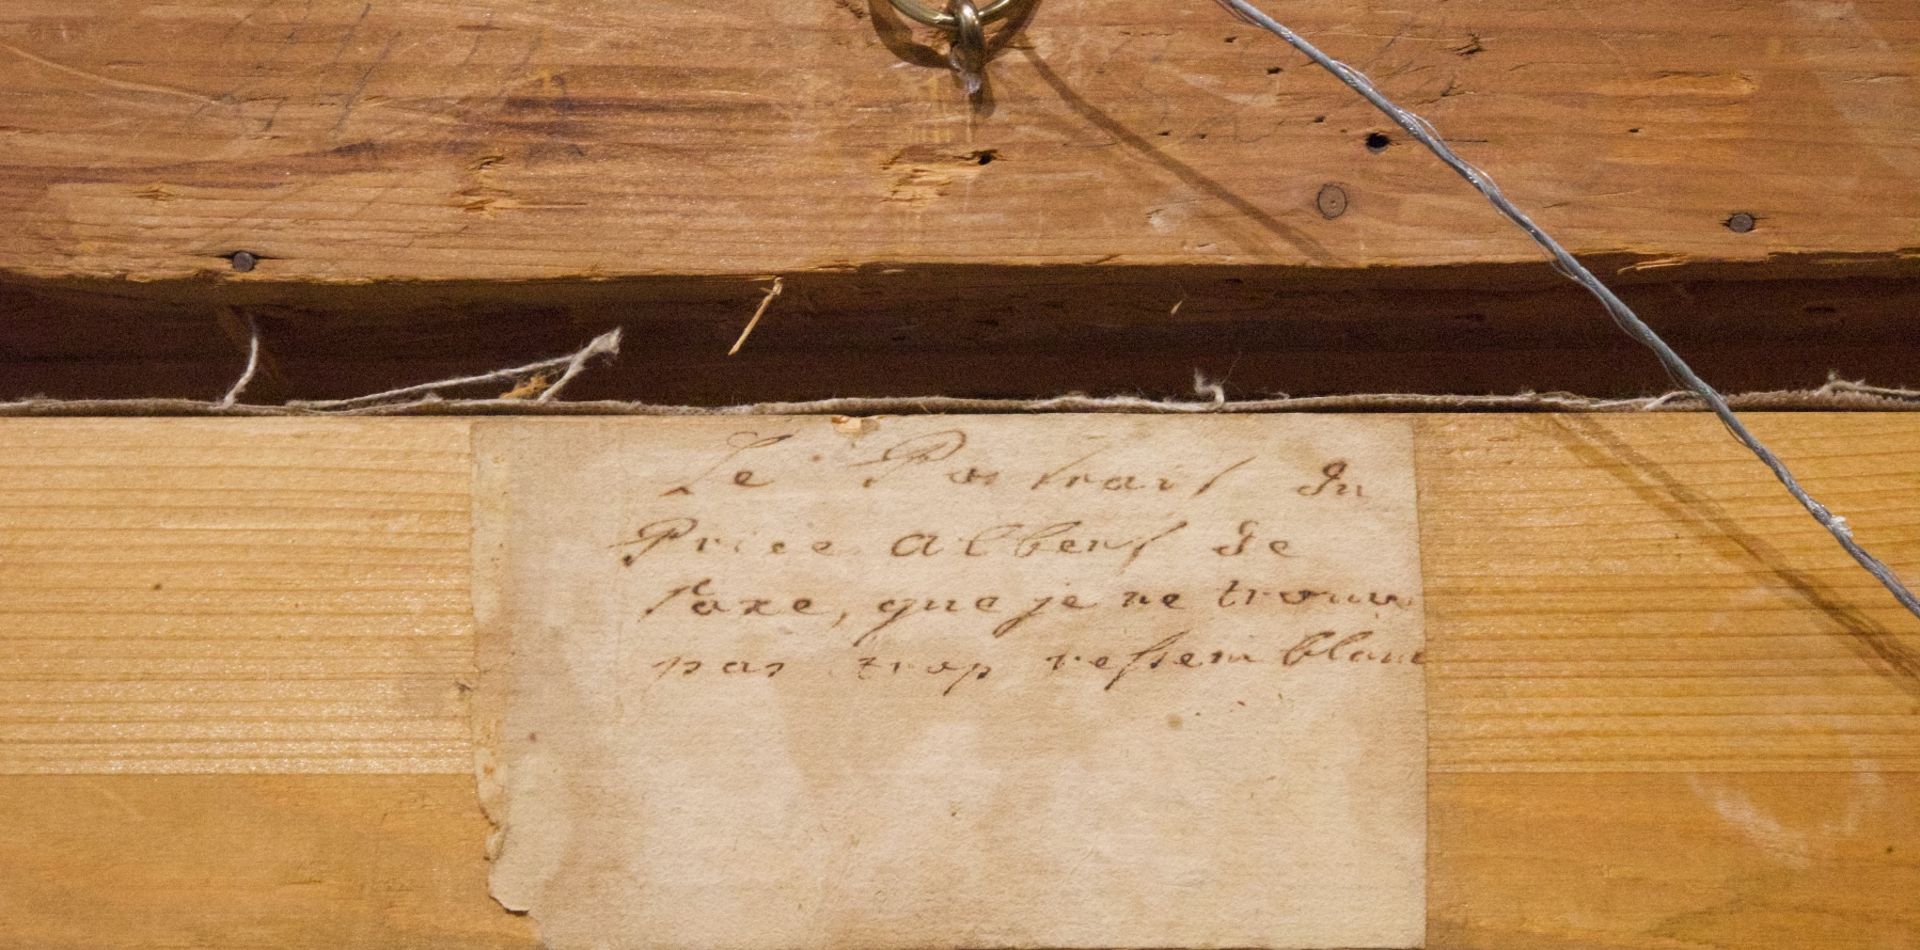 Le Portrait du
Price Albert de
Saxe, que je ne trouve
pas trop ressemblant